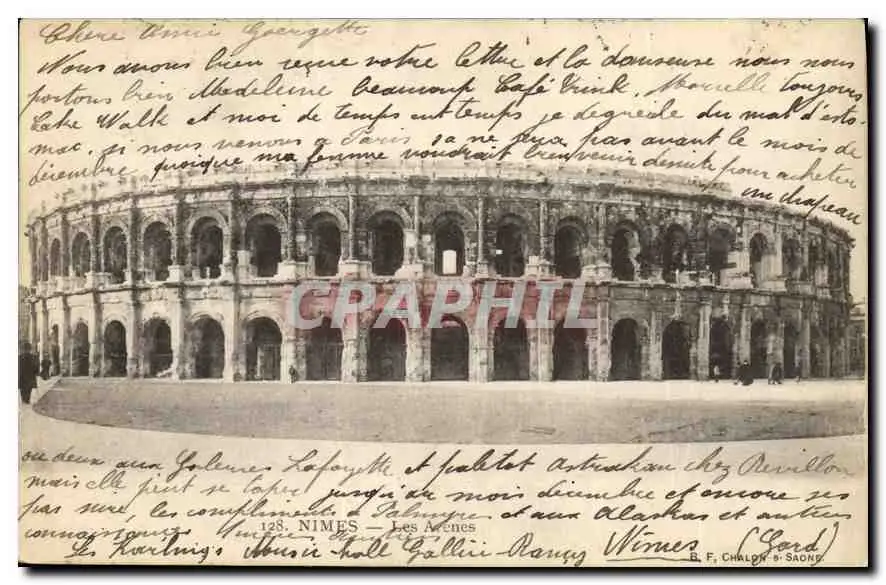 Chere Amie Georgette
Nous avons bien reçue votre lettre et la danseuse nous nous
portons bien Madeleine beaucoup Café Trink. Marcelle toujours
Cake Walk et moi de temps ent temps je degueule du mal d'esto-
mac, si nous venons a Paris sa ne sera pas avant le mois de
décembre quoique ma femme voudrait bien venir de suite pour acheter
un chapeau
CPAPHIL
ou deux aux Galeries Lafayette et paletot astrakan chez Revillon
mais elle peut se taper jusqu'au mois décembre et encore ses
pas sure, les compliments à Palmyre et aux Alaskas et autres
connaissances
128. NIMES — Les Arènes
Les Kartning's Music-hall Gallici-Rancy Nîmes (Gard)
B. F, CHALON-S-SAONE.